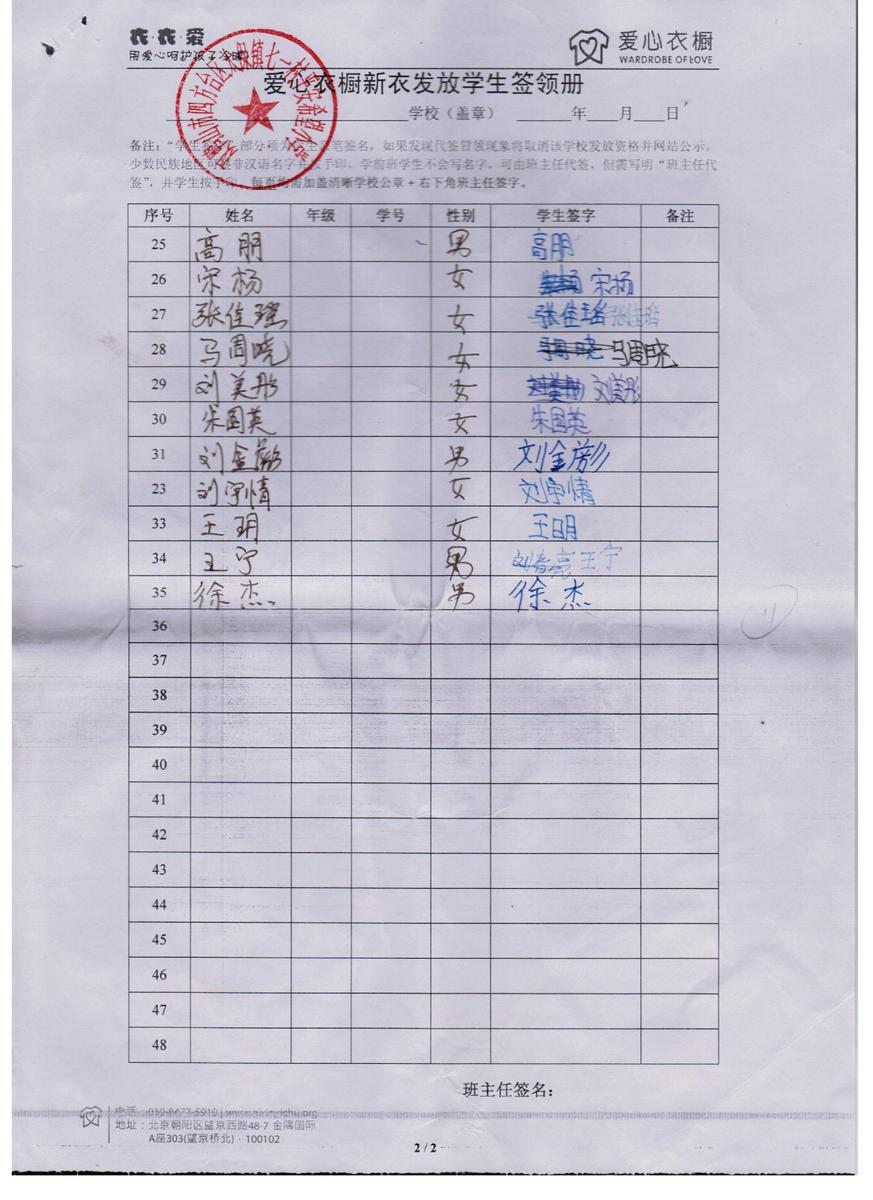 衣·衣·爱
用爱心呵护孩子冷暖
爱心衣橱
WARDROBE OF LOVE
爱心衣橱新衣发放学生签领册
学校（盖章） 年 月 日
备注：“学生签 部分须为 笔签名，如果发现代签冒领现象将取消该学校发放资格并网站公示。
少数民族地区可签非汉语名字并按手印。学前班学生不会写名字，可由班主任代签，但需写明“班主任代
签”，并学生按手印。每页均需加盖清晰学校公章 + 右下角班主任签字。
序号 姓名 年级 学号 性别 学生签字 备注
25 高朋 男 高朋
26 宋杨 女 宋杨
27 张佳瑶 女 张佳瑶 张佳瑶
28 马周晓 女 马周晓
29 刘美彤 女 刘美彤
30 朱国英 女 朱国英
31 刘金 男 刘金
23 刘宇情 女 刘宇情
33 王玥 女 王明
34 王宁 男 刘春亮 王宁
35 徐杰 男 徐杰
36
37
38
39
40
41
42
43
44
45
46
47
48
11
班主任签名：
电话：010-8677-5910 | www.aixinyichu.org
地址：北京朝阳区望京西路48-7 金隅国际
A座303(望京桥北) · 100102
2 / 2